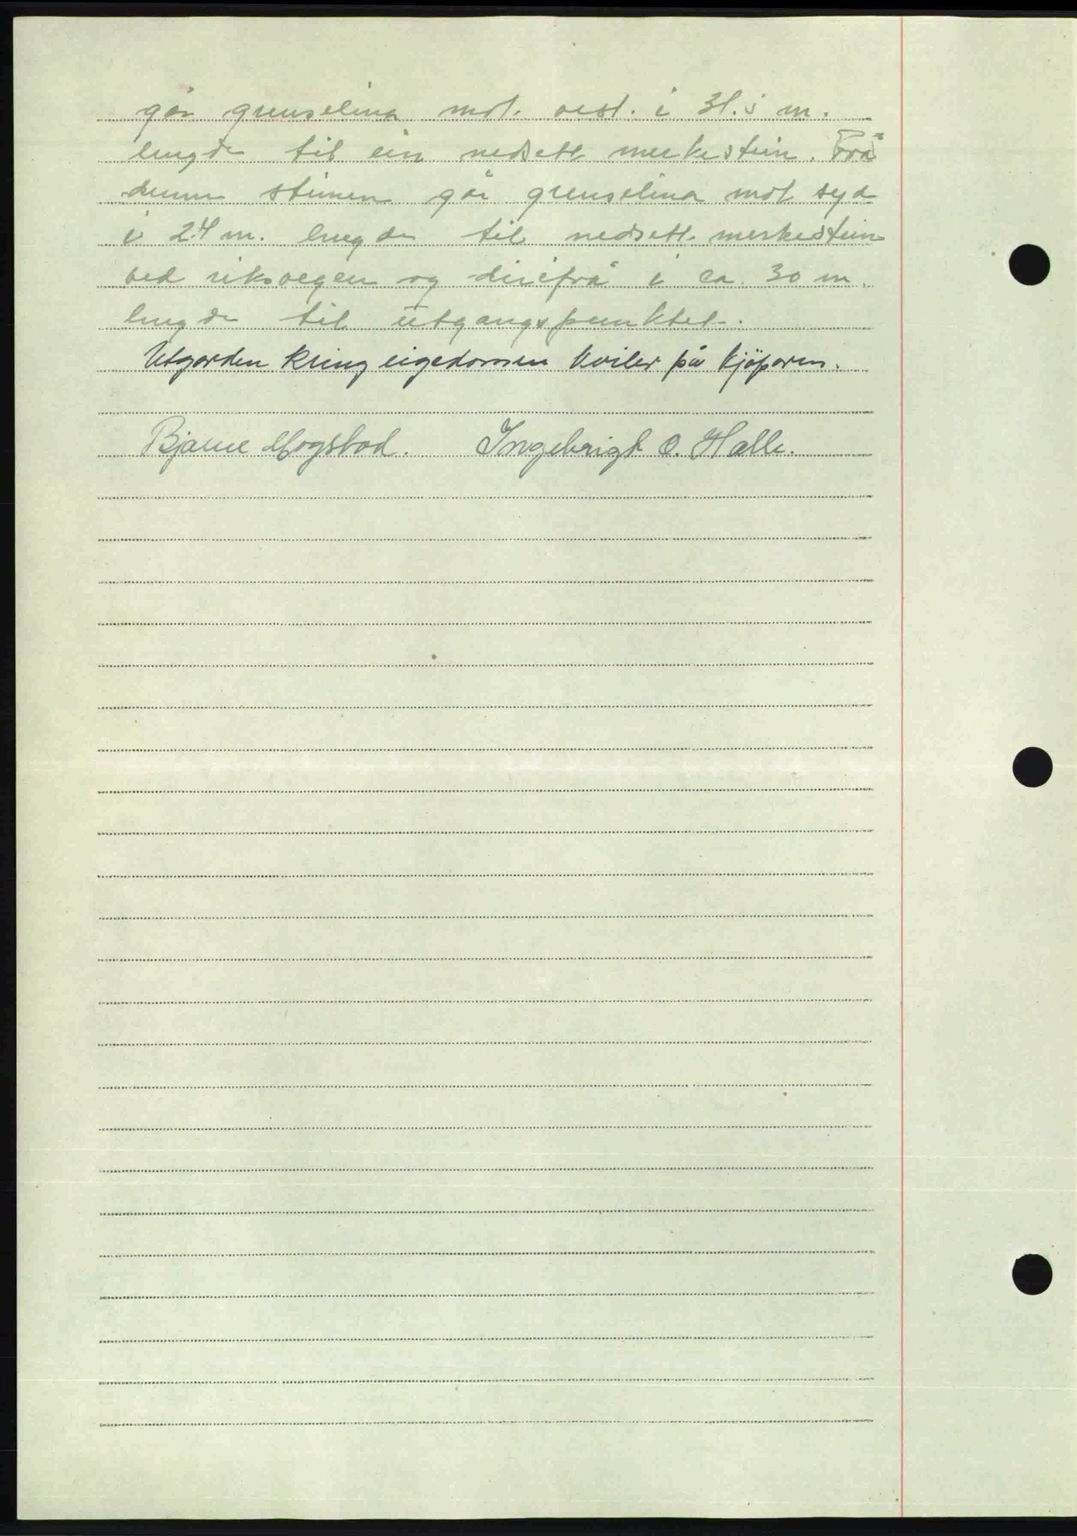 går grenselina mot vest. i 31.5 m.
lengde til ein nedsett merkestein. Frå
denne steinen går grenselina mot syd
i 24 m. lengde til nedsett merkestein
ved riksvegen og dirifrå i ca. 30 m.
lengde til utgangspunktet.
Utgarden kring eigedomen kviler på kjöparen.
Bjarne Mogstad. Ingebrigt O. Halle.